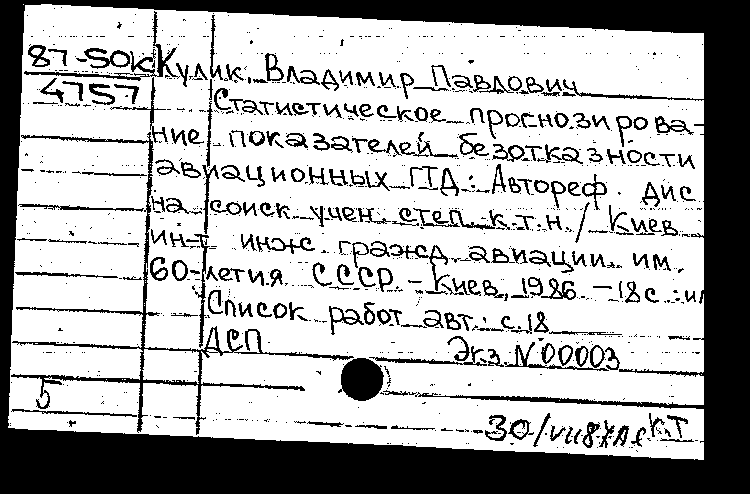 87-5OK Кулик, Владимир Павлович
4757 Статистическое прогнозирова-
ние показателей безотказности
авиационных ГТД : Автореф. дис
на соиск учен. степ. к.т.н. / Киев
ин-т инж. гражд. авиации им.
60-летия СССР. – Киев, 1986. – 18 с. : ил
Список работ авт.: с. 18
ДСП Экз. N 00003
5
30/VII87 КТ